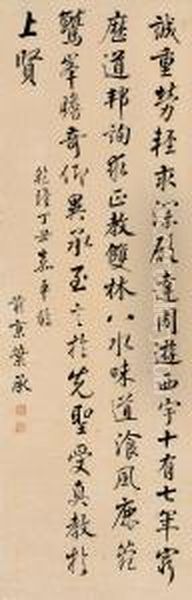 誠重勞輕求深願達周遊西宇十有七年窮
歷道邦詢求正教雙林八水味道飡風鹿菀
鷲峯瞻奇仰異承至言於先聖受真教於
上賢
乾隆丁丑嘉平
蔣業承